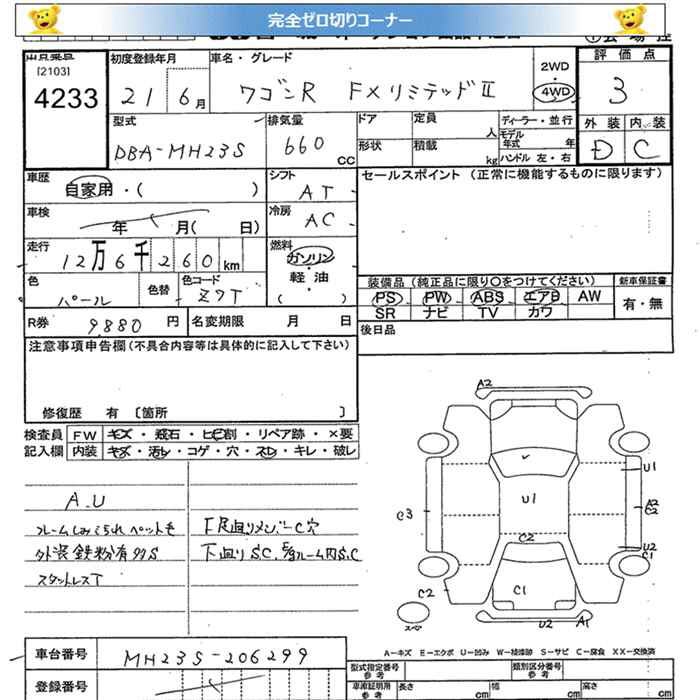 完全ゼロ切りコーナー
[2103]
4233
初度登録年月
21 6月
車名・グレード
ワゴンR FXリミテッドⅡ
2WD
4WD
評価点
3
外装 内装
D C
型式
DBA-MH23S
排気量
660 CC
ドア
形状
定員 人
積載 kg
ディーラー・並行
モデル年式 年
ハンドル 左・右
車歴
自家用・( )
シフト
AT
セールスポイント (正常に機能するものに限ります)
車検
年 月( 日)
冷房
AC
走行
12万6千260km
燃料
ガソリン
・
軽油
( )
色
パール
色替
色コード
Z7T
装備品 (純正品に限り○をつけてください)
新車保証書
PS PW ABS エアB AW
有・無
SR ナビ TV カワ
R券 9880円
名変期限 月 日
後日品
注意事項申告欄(不具合内容等は具体的に記入して下さい)
修復歴 有 〔箇所 〕
検査員記入欄
FW キズ・飛石・ヒビ割・リペア跡・×要
内装 キズ・汚レ・コゲ・穴・スレ・キレ・破レ
A.U
外装鉄粉有
スタットレスT
下廻りS.C.
A2
U1
U1
A2
C2
C3
C2
U2
C1
C2
C1
U2
A1
スペア
A−キズ E−エクボ U−凹み W−補修跡 S−サビ C−腐食 XX−交換済
車台番号
MH23S-206299
登録番号
型式指定番号 参考
類別区分番号 参考
車庫証明用 参考
長さ cm
幅 cm
高さ cm